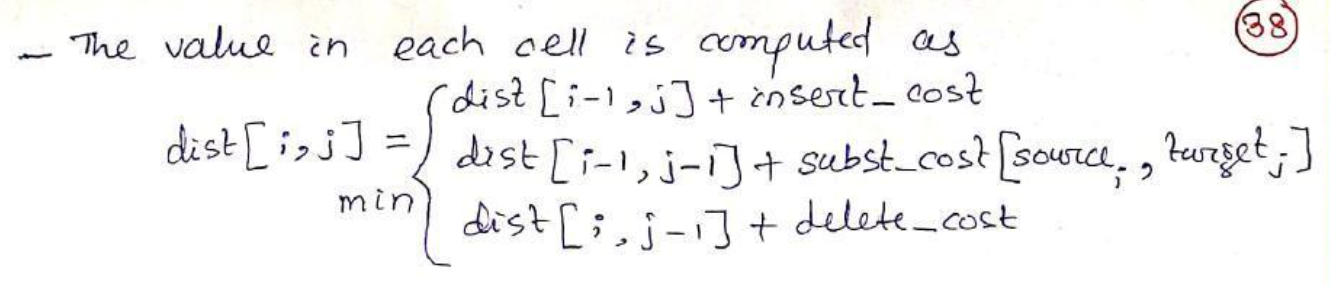 - The value in each cell is computed as
38
dist[i-1,j] + insert_cost
dist[i,j] = min { dist[i-1,j-1] + subst_cost[source_i, target_j]
dist[i,j-1] + delete_cost